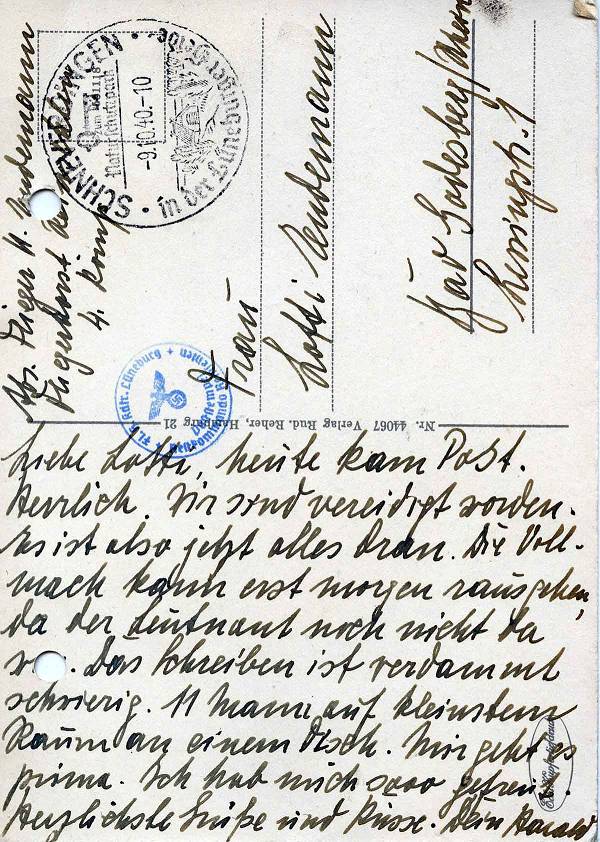 SCHNEVERDINGEN
Naturschutzpark
-9.10.40.-10
in der Lüneburger Heide
Abs. Flieger H. Andermann
Fliegerhorst
4. Komp.
Frau
Lotti Andermann
Bad Godesberg/Rhein
Lessingstr. 7
Kdtr. Lüneburg
Nr. 44067 Verlag Rud. Reher, Hamburg 21
Liebe Lotti, heute kam Post.
Herrlich. Wir sind vereidigt worden.
Es ist also jetzt alles dran. Die Voll-
mach kann erst morgen rausgehen,
da der Leutnant noch nicht da
. Das Schreiben ist verdammt
schwierig. 11 Mann auf kleinstem
Raum an einem Tisch. Mir geht es
prima. Ich hab mich sooo gefreut.
Herzlichste Grüße und Küsse. Dein Harald